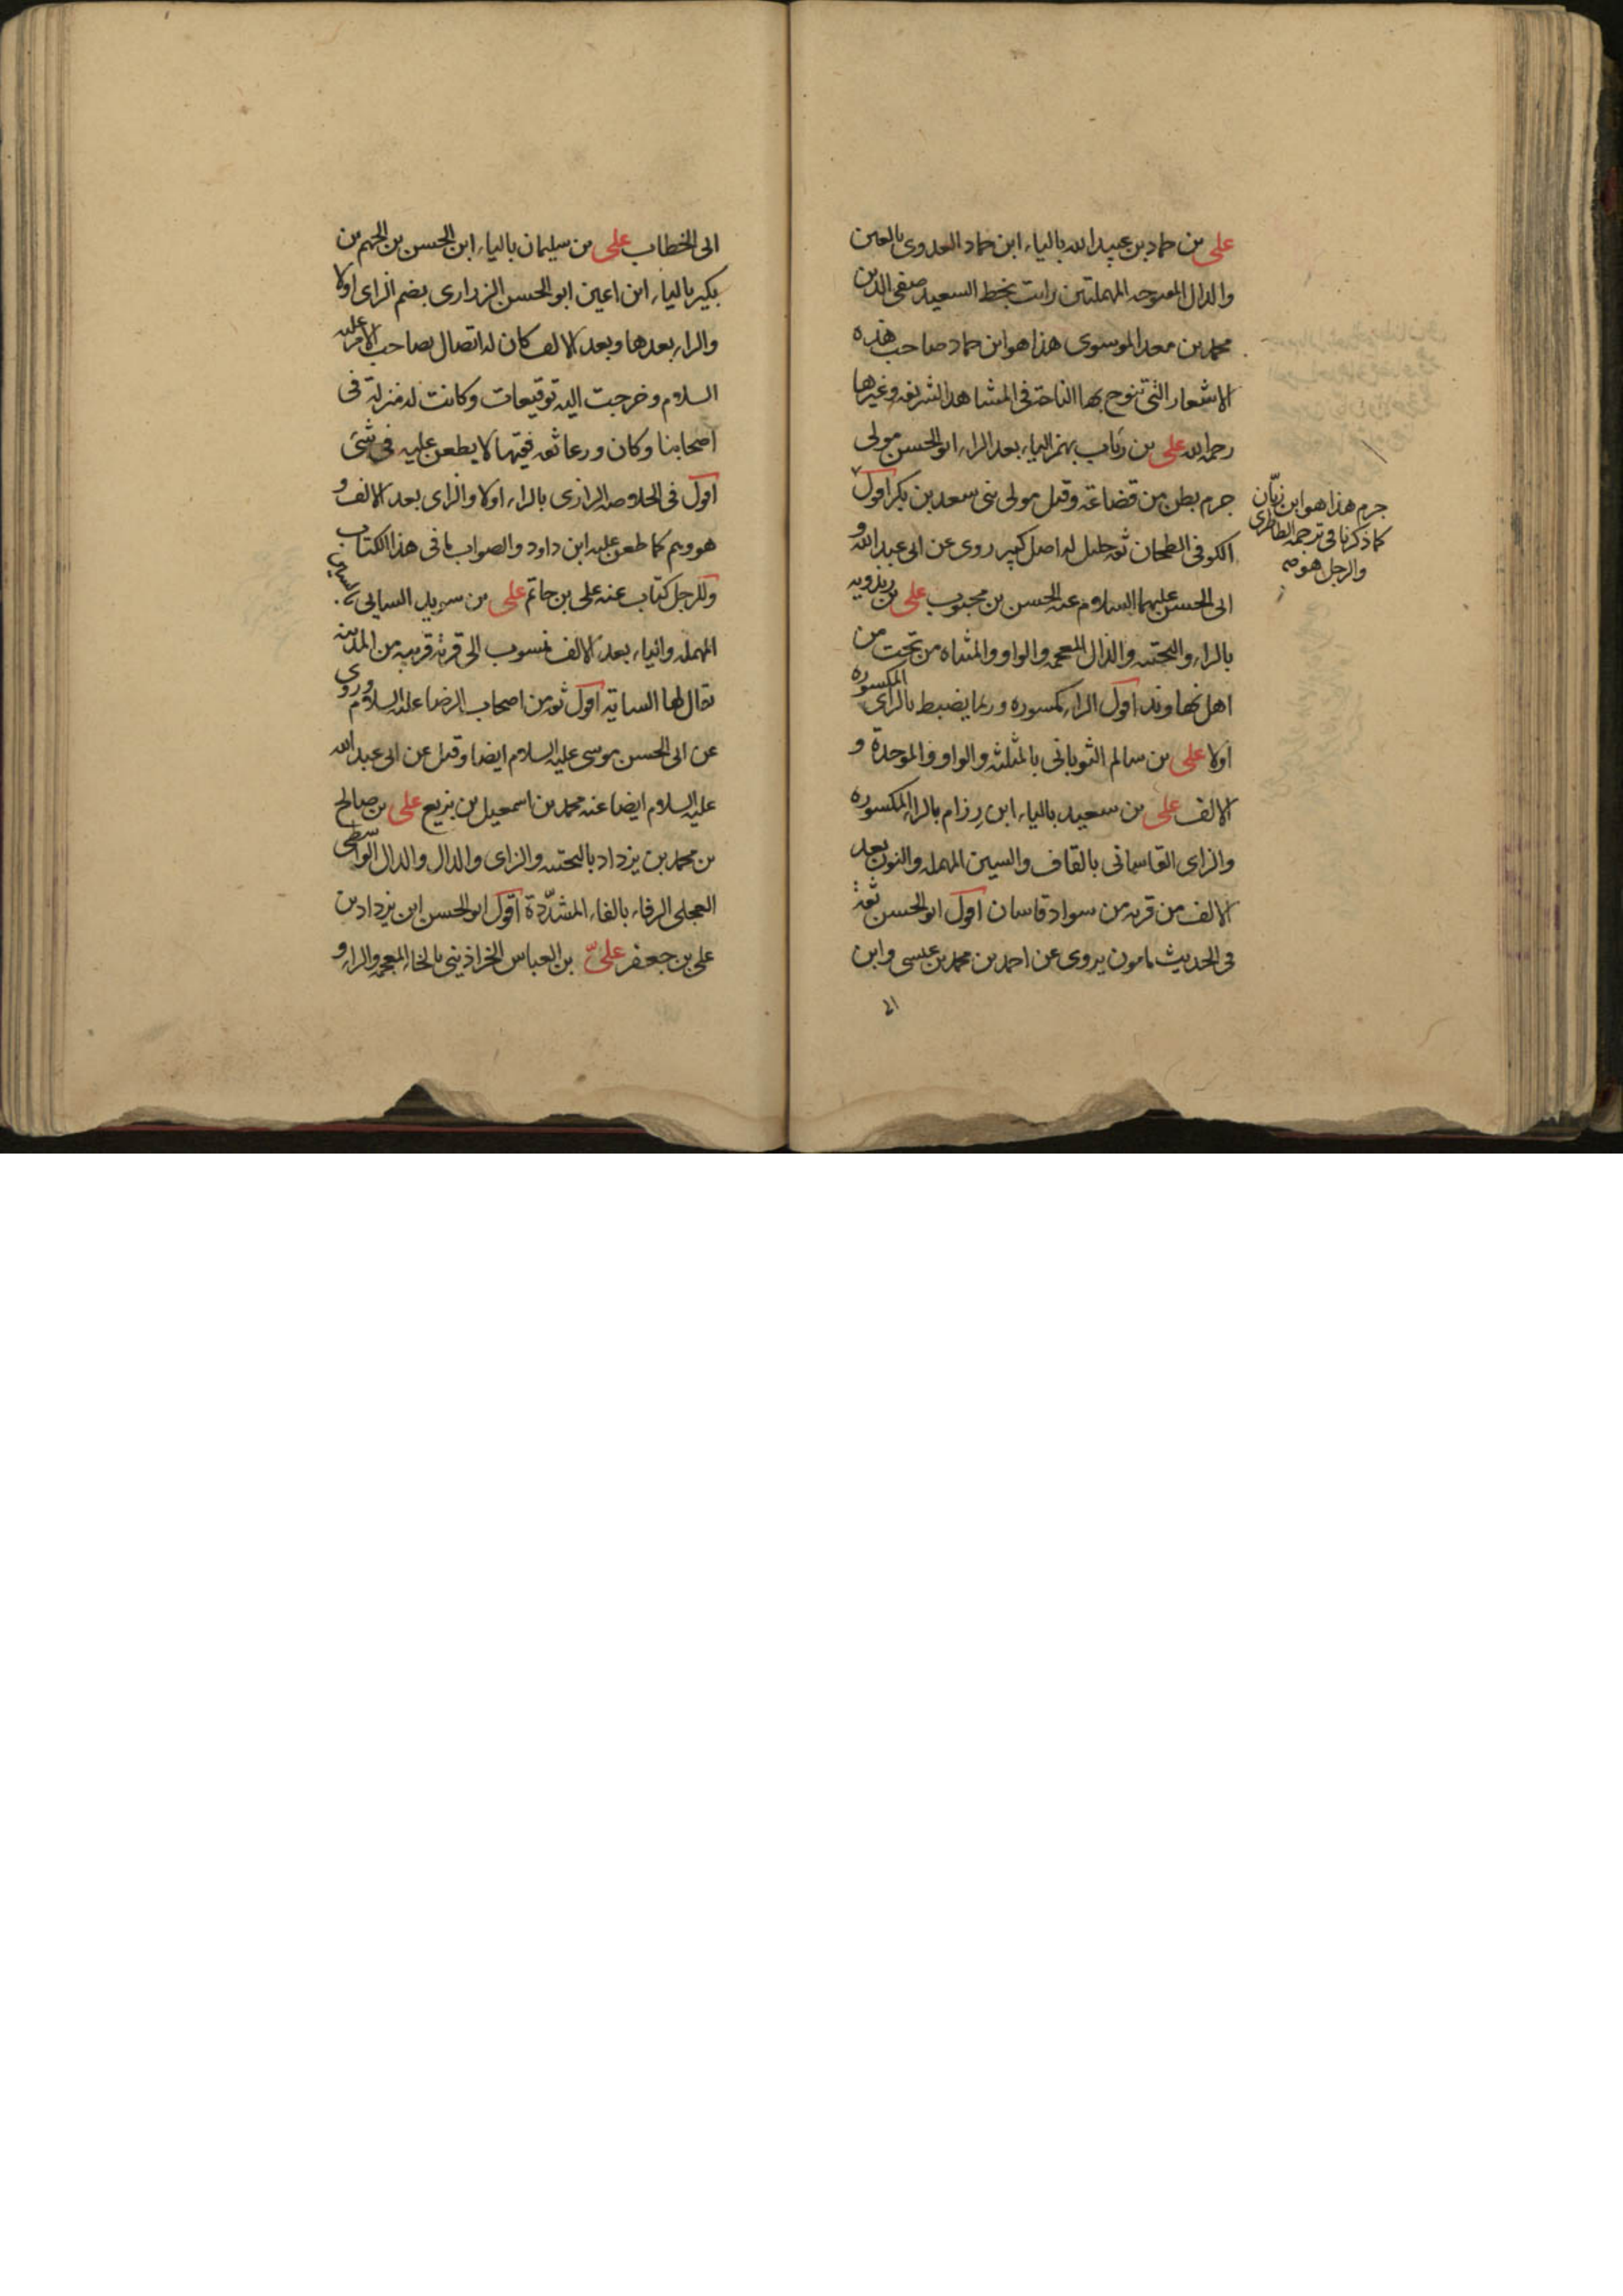 على بن حماد بن عبيد الله بالياء ابن حماد العدوى بالعين
والدال المفتوحه المهملتين رايت بخط السعيد صفى الدين
محمد بن معد الموسوى هذا هو ابن حماد صاحب هذه
الاشعار التى تنوح بها الناحة فى المشاهد الشريفه وغيرها
رحمه الله على بن رئاب بهمز الياء بعد الراء ابو الحسن مولى
جرم بطن من قضاعة وقيل مولى بنى سعد بن بكر اقول
الكوفى الطحان ثقه جليل له اصل كبير روى عن ابى عبد الله و
ابى الحسن عليهما السلام عنه الحسن بن محبوب على بن ريذويه
بالراء والتحتيه والذال المعجمه والواو والمثناه من تحت من
اهل نهاوند اقول الراء مكسوره وربما يضبط بالزاى المكسوره
اولا على بن سالم الثوبانى بالمثلثه والواو والموحدة و
الالف على بن سعيد بالياء ابن رزام بالراء المكسوره
والزاى القاسانى بالقاف والسين المهمله والنون بعد
الالف من قريه من سواد قاسان اقول ابو الحسن ثقة
فى الحديث مامون يروى عن احمد بن محمد بن عيسى وابن
ابى
جرم هذا هو ابن زبّان
كما ذكرنا فى ترجمه الطاطرى
والرجل هو
ابى الخطاب على بن سليمان بالياء ابن الحسن بن الجهم بن
بكير بالياء ابن اعين ابو الحسن الزرارى بضم الزاى اولا
والراء بعدها وبعد الالف كان له اتصال بصاحب الامر عليه
السلام وخرجت اليه توقيعات وكانت له منزلة فى
اصحابنا وكان ورعا ثقه فقيها لا يطعن عليه فى شئ
اقول فى الخلاصه الرازى بالراء اولا والزاى بعد الالف و
هو وهم كما طعن عليه ابن داود والصواب ما فى هذا الكتاب
وللرجل كتاب عنه على بن حاتم على بن سويد السايى بالسين
المهمله والياء بعد الالف منسوب الى قرية قريبه من المدينه
يقال لها الساية اقول ثقه من اصحاب الرضا عليه السلام وروى
عن ابى الحسن موسى عليه السلام ايضا وقيل عن ابى عبد الله
عليه السلام ايضا عنه محمد بن اسمعيل بن بزيع على بن صالح
بن محمد بن يزداد بالتحتيه والزاى والدال والدال الواسطى
العجلى الرفاء بالفاء المشدّدة اقول ابو الحسن ابن يزداد بن
على بن جعفر علىّ بن العباس الخراذينى بالخاء المعجمه والراء و